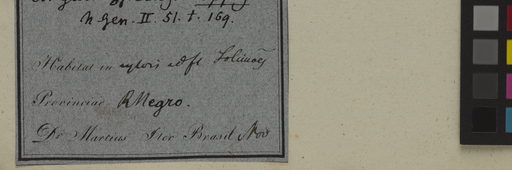 N. Gen. II. 51. t. 169.
Habitat in sylvis ad fl. Solimoës
Provinciae R. Negro.
Dr Martius Iter Brasil Nov